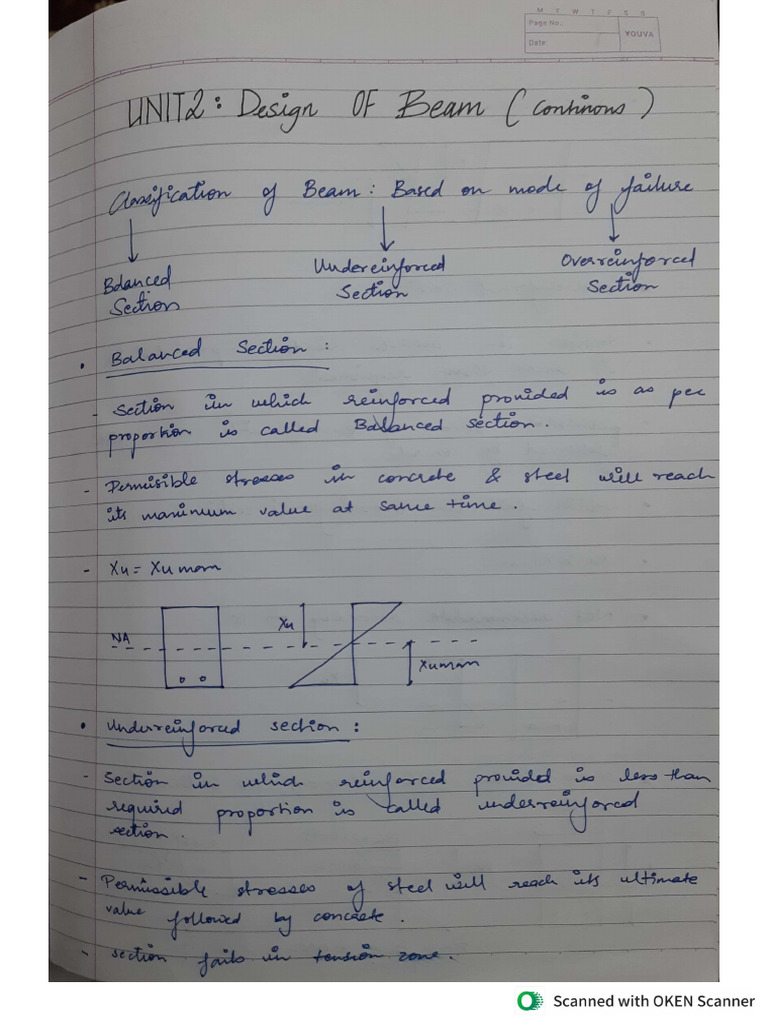 M T W T F S S
Page No.:
YOUVA
Date:
UNIT2: Design OF Beam (continous)
Classification of Beam: Based on mode of failure
Balanced Section
Undereinforced Section
Overreinforced Section
• Balanced Section:
- Section in which reinforced provided is as per
proportion is called Balanced section.
- Permisible stresses in concrete & steel will reach
its maximum value at same time.
- Xu = Xu max
NA
Xu
Xumax
• Underreinforced section:
- Section in which reinforced provided is less than
required proportion is called underreinforced
section.
- Permissible stresses of steel will reach its ultimate
value followed by concrete.
- section fails in tension zone.
Scanned with OKEN Scanner